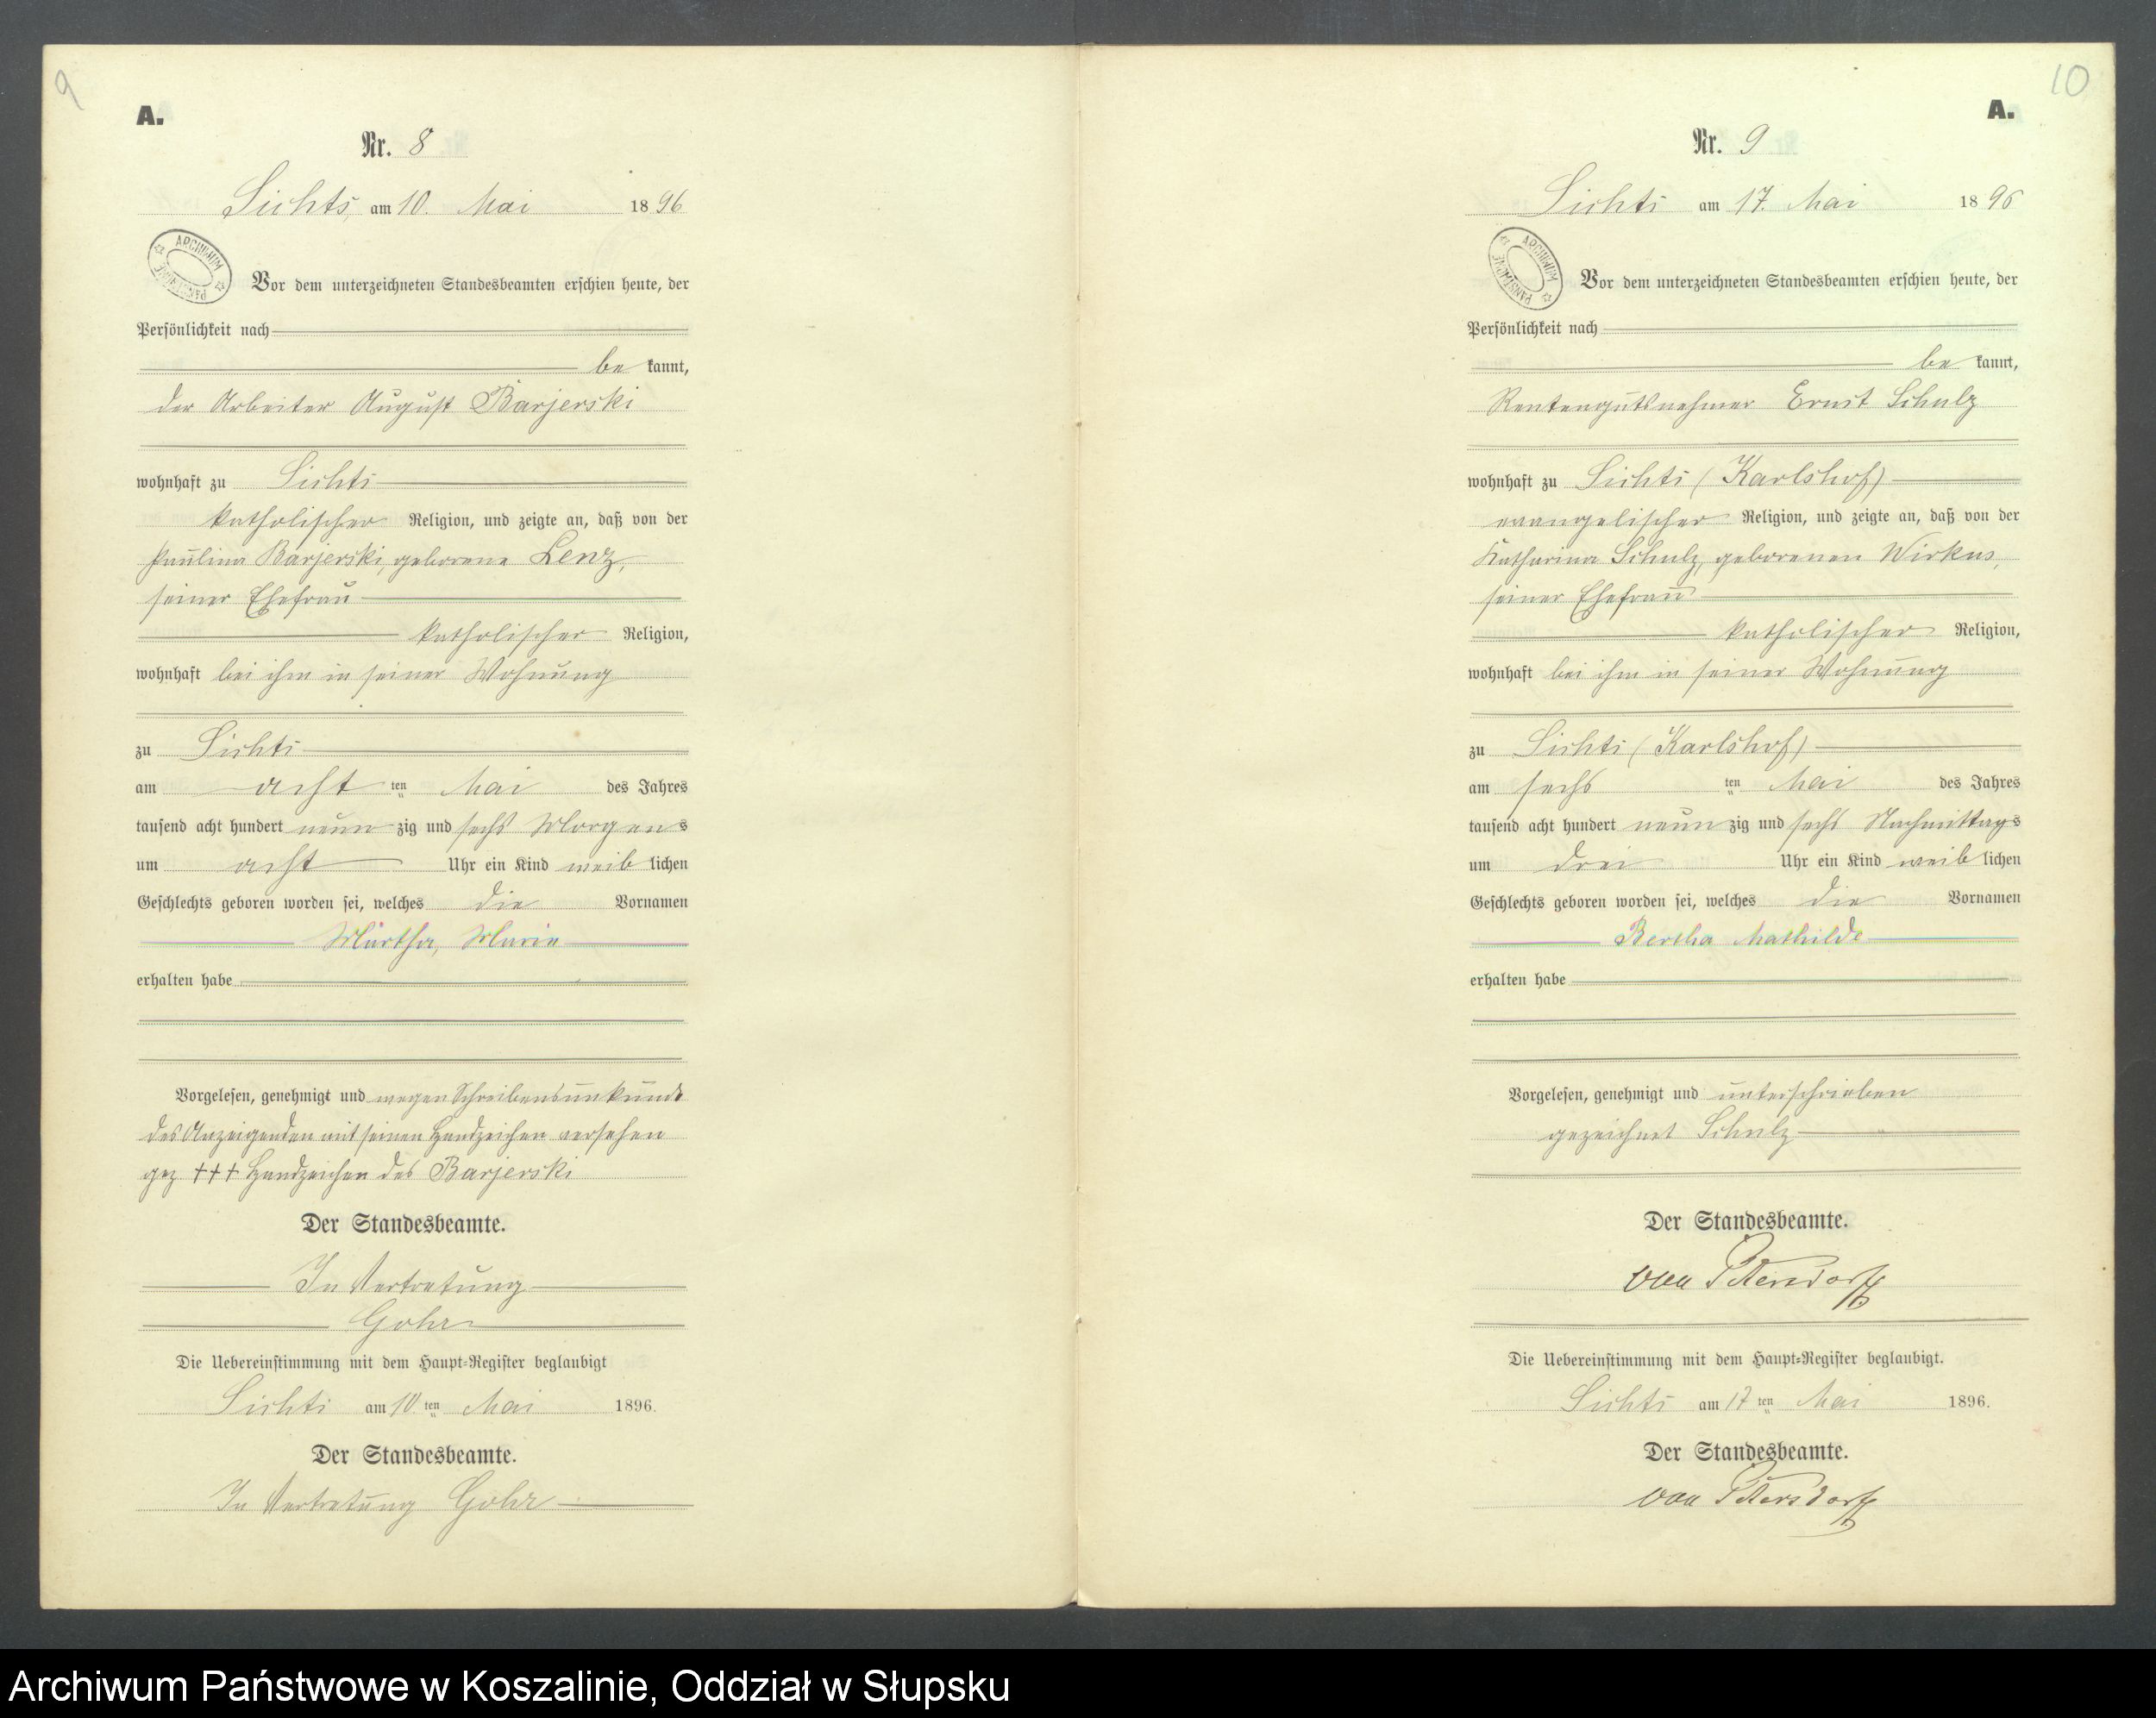 9
A.
Nr. 8
Lichts, am 10. Mai 1896
ARCHIWUM PAŃSTWOWE
Vor dem unterzeichneten Standesbeamten erschien heute, der
Persönlichkeit nach
be kannt,
der Arbeiter August Barjerski
wohnhaft zu Lichts
katholischer Religion, und zeigte an, daß von der
Paulina Barjerski, geborene Lenz,
seiner Ehefrau
katholischer Religion,
wohnhaft bei ihm in seiner Wohnung
zu Lichts
am acht ten Mai des Jahres
tausend acht hundert neun zig und sechs Morgens
um acht Uhr ein Kind weib lichen
Geschlechts geboren worden sei, welches die Vornamen
Martha, Marie
erhalten habe
Vorgelesen, genehmigt und wegen Schreibensunkunde
des Anzeigenden mit seinen Handzeichen versehen
gez +++ Handzeichen des Barjerski
Der Standesbeamte.
In Vertretung
Gohr
Die Uebereinstimmung mit dem Haupt-Register beglaubigt
Lichts am 10 ten Mai 1896.
Der Standesbeamte.
In Vertretung Gohr
10
A.
Nr. 9
Lichts am 17. Mai 1896
ARCHIWUM PAŃSTWOWE
Vor dem unterzeichneten Standesbeamten erschien heute, der
Persönlichkeit nach
be kannt,
Rentengutsnehmer Ernst Schulz
wohnhaft zu Lichts (Karlshof)
evangelischer Religion, und zeigte an, daß von der
Katharina Schulz, geborenen Wirkus,
seiner Ehefrau
katholischer Religion,
wohnhaft bei ihm in seiner Wohnung
zu Lichts (Karlshof)
am sechs ten Mai des Jahres
tausend acht hundert neun zig und sechs Nachmittags
um drei Uhr ein Kind weib lichen
Geschlechts geboren worden sei, welches die Vornamen
Bertha Mathilde
erhalten habe
Vorgelesen, genehmigt und unterschrieben
gezeichnet Schulz
Der Standesbeamte.
von Petersdorff
Die Uebereinstimmung mit dem Haupt-Register beglaubigt.
Lichts am 17 ten Mai 1896.
Der Standesbeamte.
von Petersdorff
Archiwum Państwowe w Koszalinie, Oddział w Słupsku